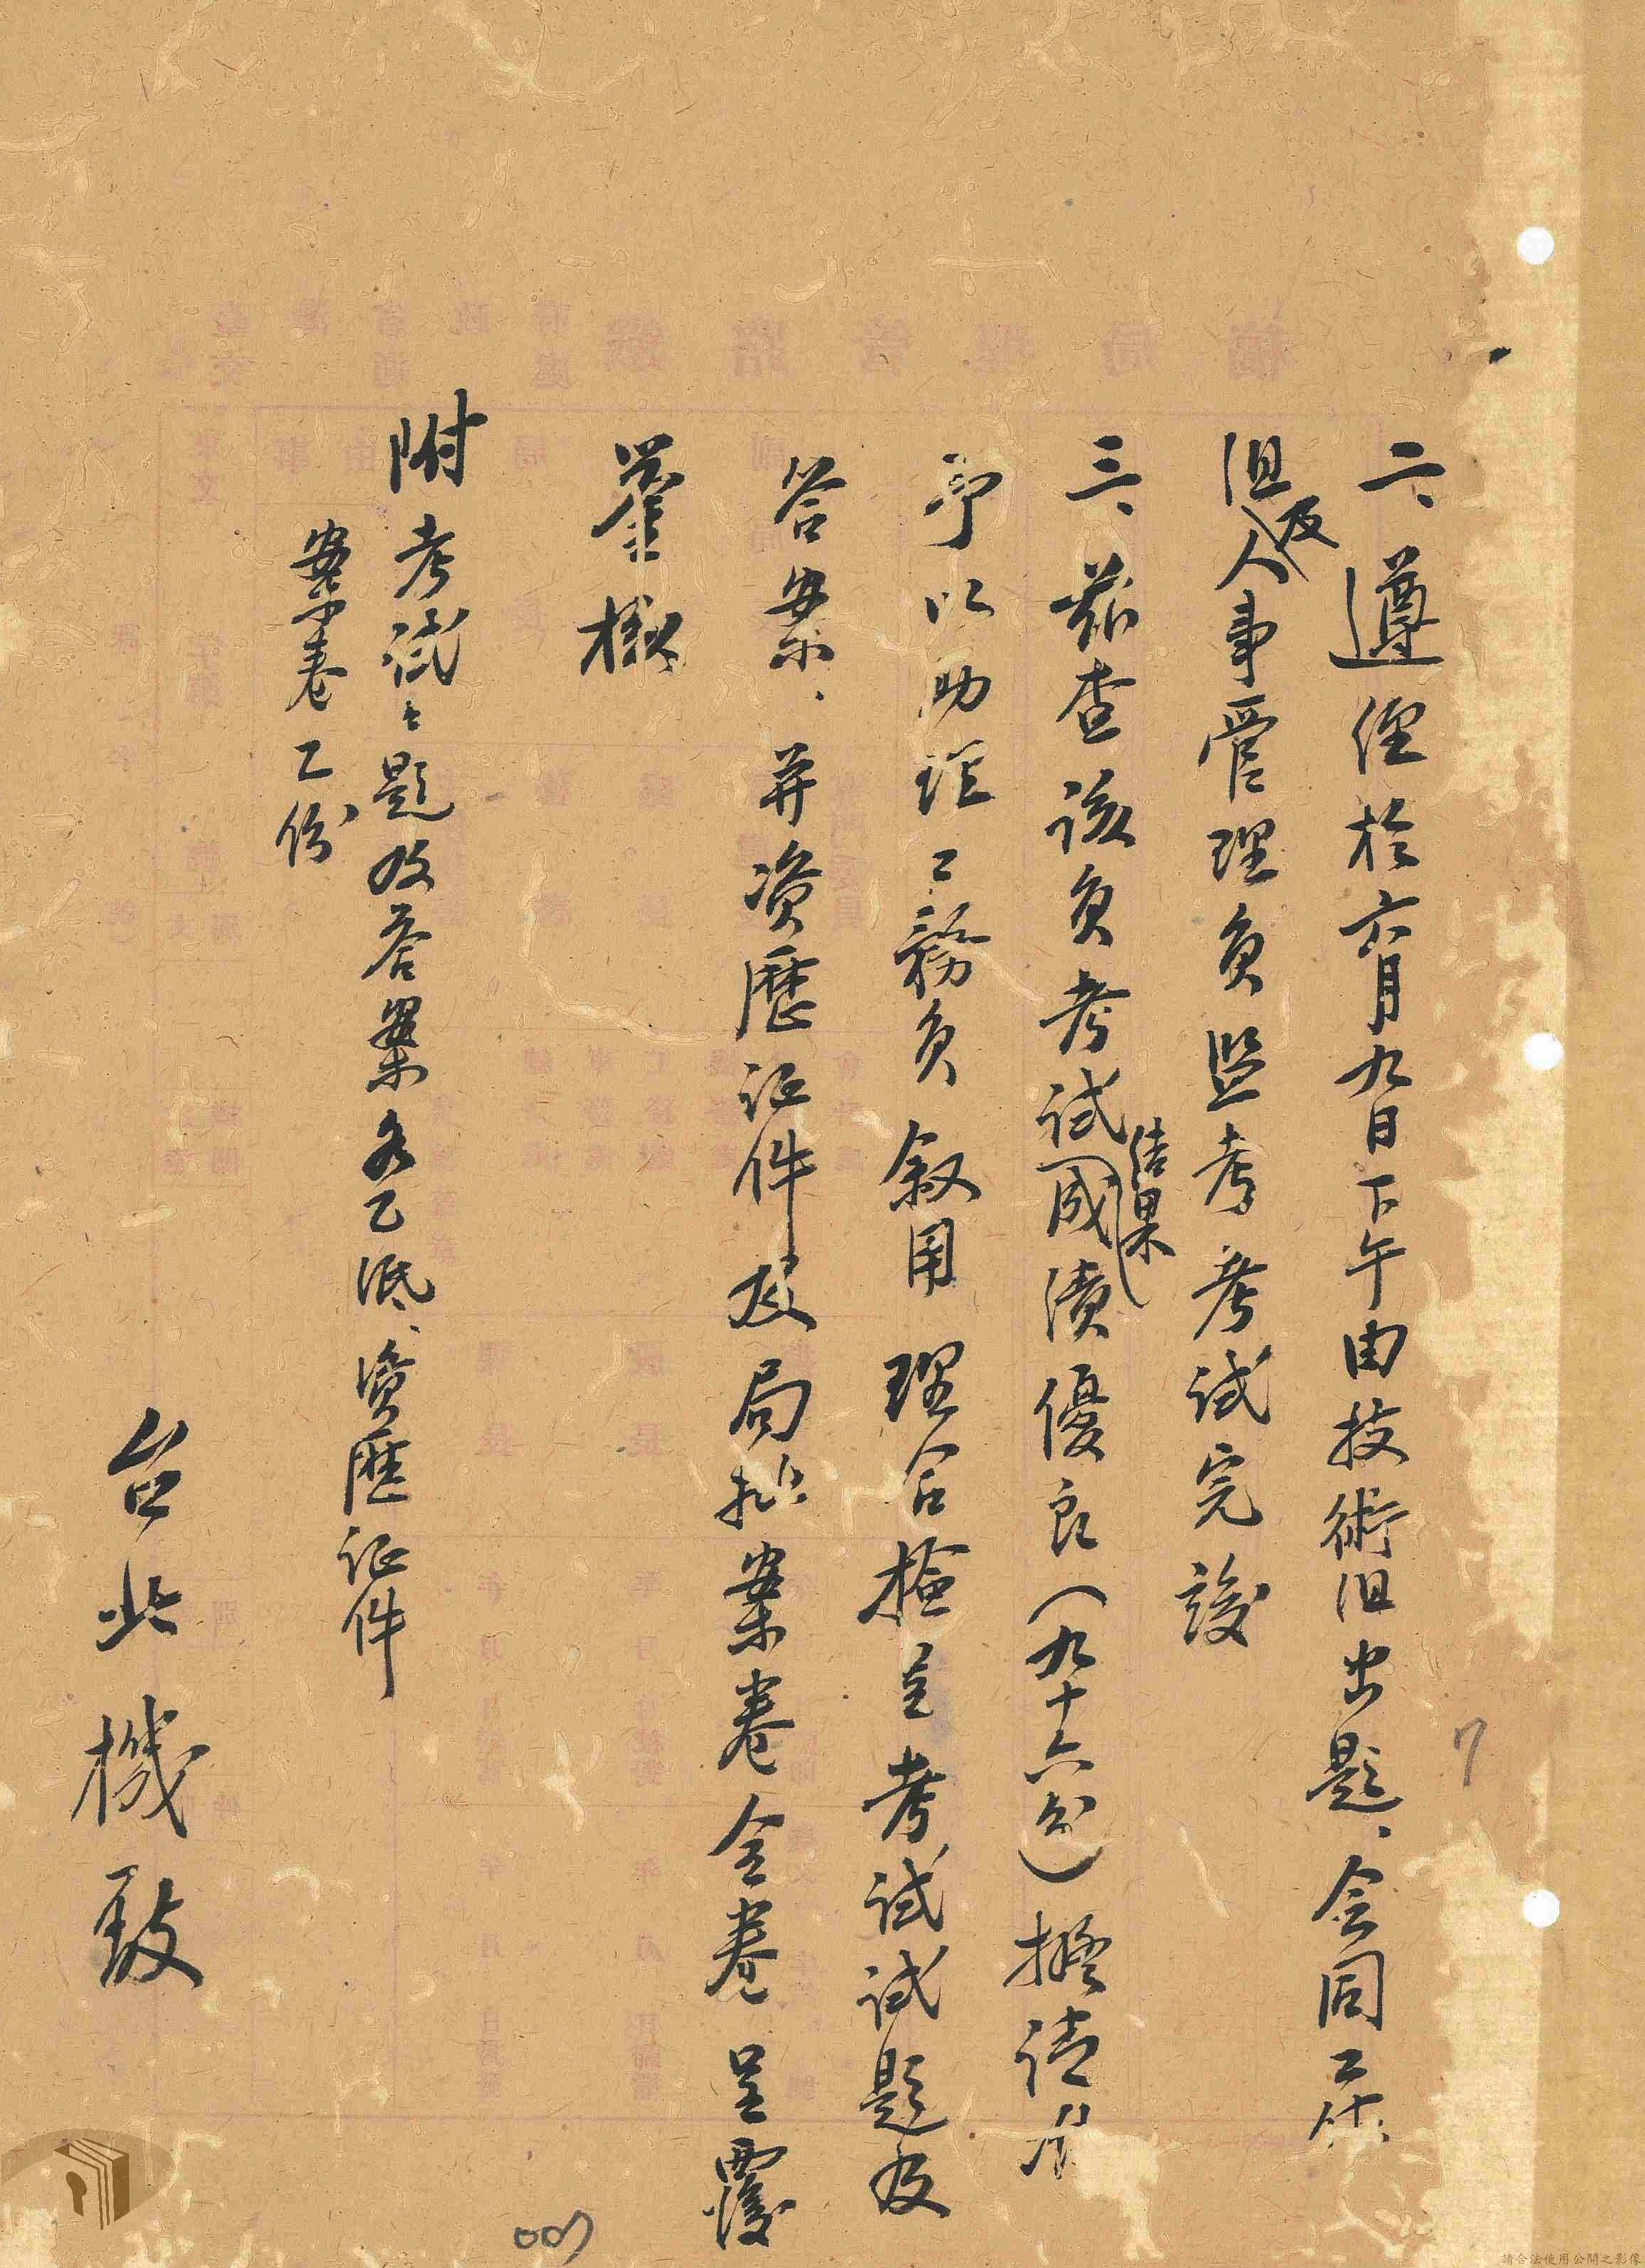 二、遵經於六月九日下午由技術組出題、會同工作
組及人事管理員監考考試完竣
三、茲查該員考試結果成績優良（九十六分）擬請升
予以助理工務員叙用理合檢呈考試試題及
答案、并資歷证件及局批案卷全卷呈覆
鑒核
附考試試題及答案各乙纸、資歷证件
案卷乙份
台北機段
7
007
請合法使用公開之影像